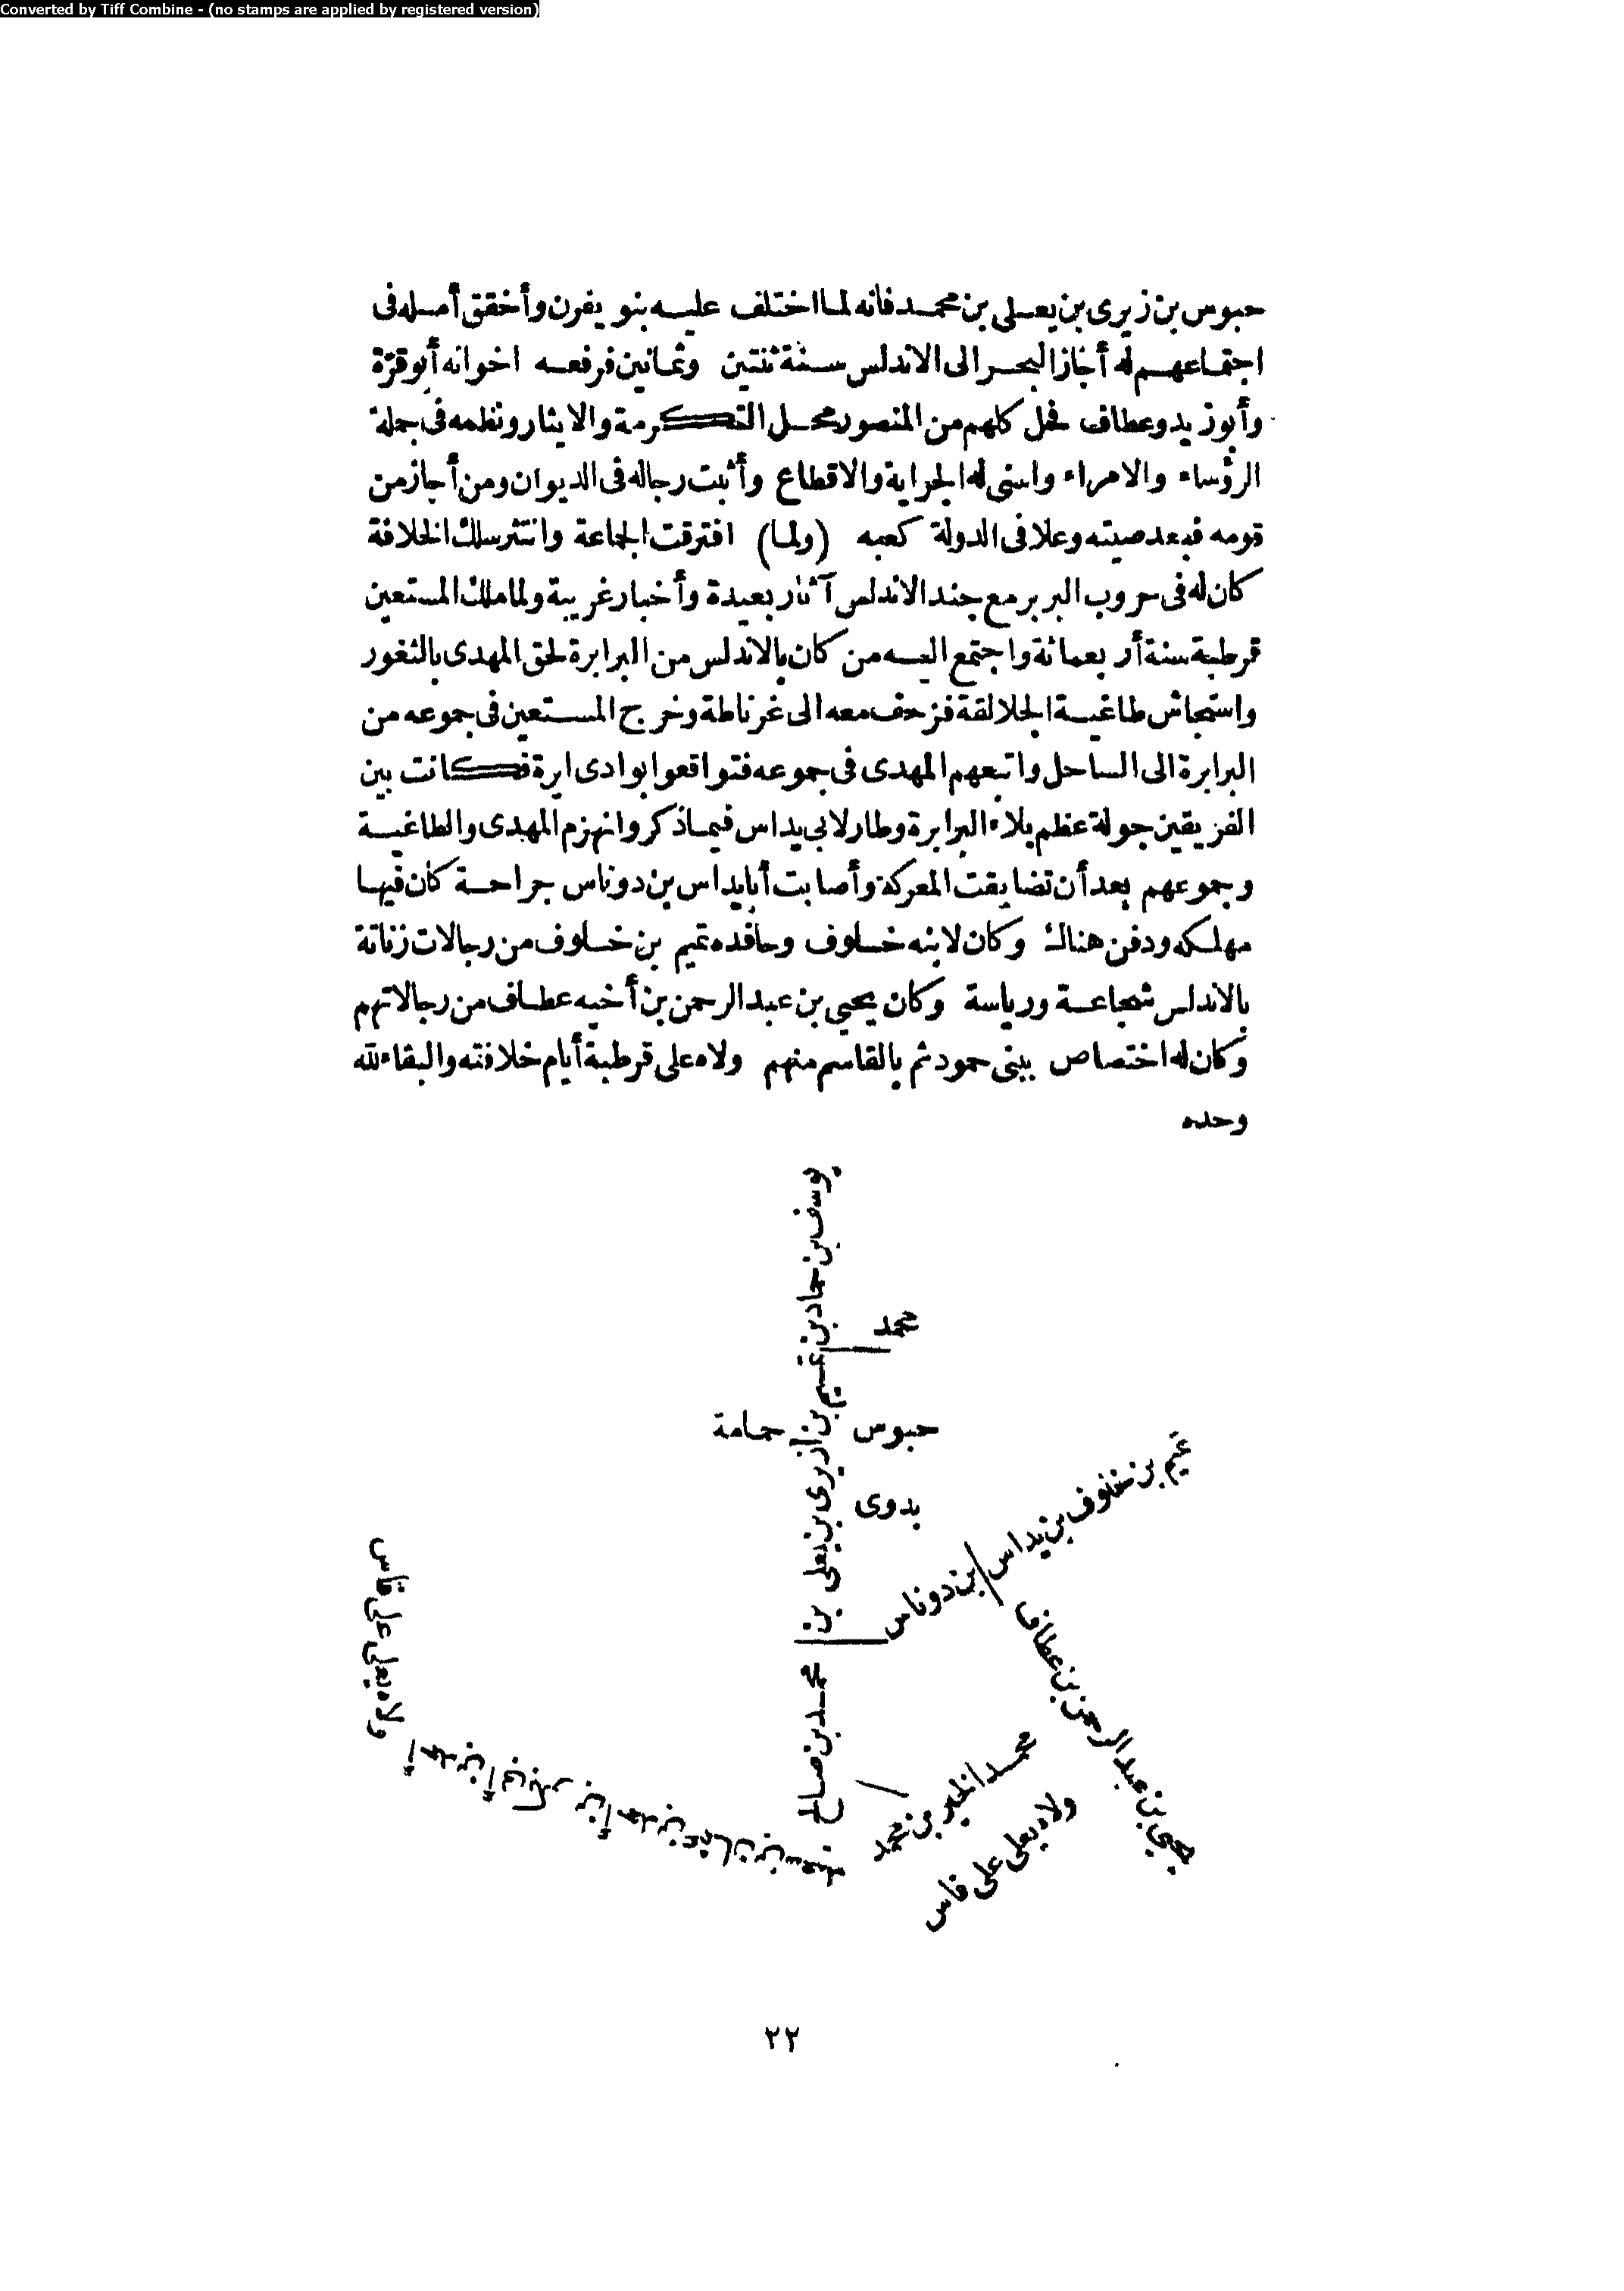 Converted by Tiff Combine - (no stamps are applied by registered version)
حبوس بن زيرى بن يعلى بن محمد فانه لما اختلف عليه بنو يفرن وأخفق أمله فى
اجتماعهم له أجاز البحر الى الاندلس سنة ثنتين وثمانين فرفعه اخوانه أبو قرّة
وأبو زيد وعطاف فحل كلهم من المنصور محل التكرمة والايثار ونظمه فى جملة
الرؤساء والامراء واسنى له الجراية والاقطاع وأثبت رجاله فى الديوان ومن أجاز من
قومه فبعد صيته وعلا فى الدولة كعبه (ولما) افترقت الجماعة وانتثر سلك الخلافة
كان له فى حروب البربر مع جند الاندلس آثار بعيدة وأخبار غريبة ولما ملك المستعين
قرطبة سنة أربعمائة واجتمع اليه من كان بالاندلس من البرابرة لحق المهدى بالثغور
واستجاش طاغية الجلالقة فزحف معه الى غرناطة وخرج المستعين فى جموعه من
البرابرة الى الساحل واتبعهم المهدى فى جموعه فتواقعوا بوادى ايرة فكانت بين
الفريقين جولة عظم بلاء البرابرة وطار لابى يداس فيها ذكر وانهزم المهدى والطاغية
وجموعهم بعد أن تضايقت المعركة وأصابت أبا يداس بن دوناس جراحة كان فيها
مهلكه ودفن هنالك وكان لابنه خلوف وحافده تميم بن خلوف من رجالات زناتة
بالاندلس شجاعة ورياسة وكان يحيى بن عبد الرحمن بن أخيه عطاف من رجالاتهم
وكان له اختصاص ببنى حمود ثم بالقاسم منهم ولاه على قرطبة أيام خلافته والبقاء لله
وحده
يوسف بن حماد بن تميم بن زيرى بن يعلى بن محمد بن صالح
محمد
حبوس
حمامة
بدوى
تميم بن خلوف بن يداس بن دوناس
يحيى بن عبد الرحمن بن عطاف
محمد الخير بن محمد
ولاه يعلى على فاس
أحمد بن أبى بكر بن أحمد بن عثمان بن سعيد
ولاه يعلى على فاس
٢٢